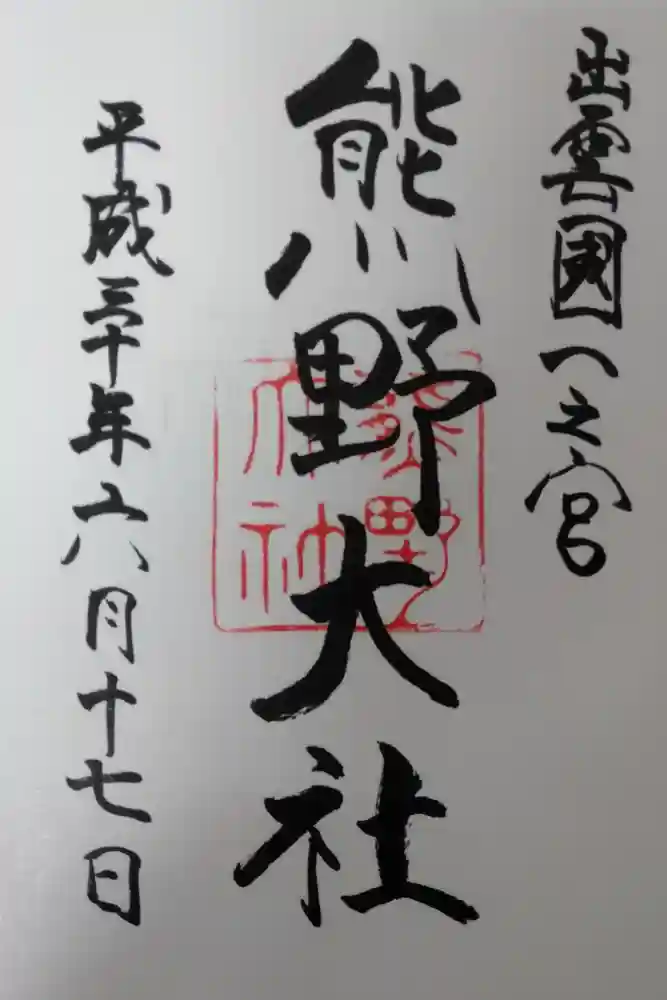 出雲國一之宮
熊野大社
熊野神社
平成三十年六月十七日